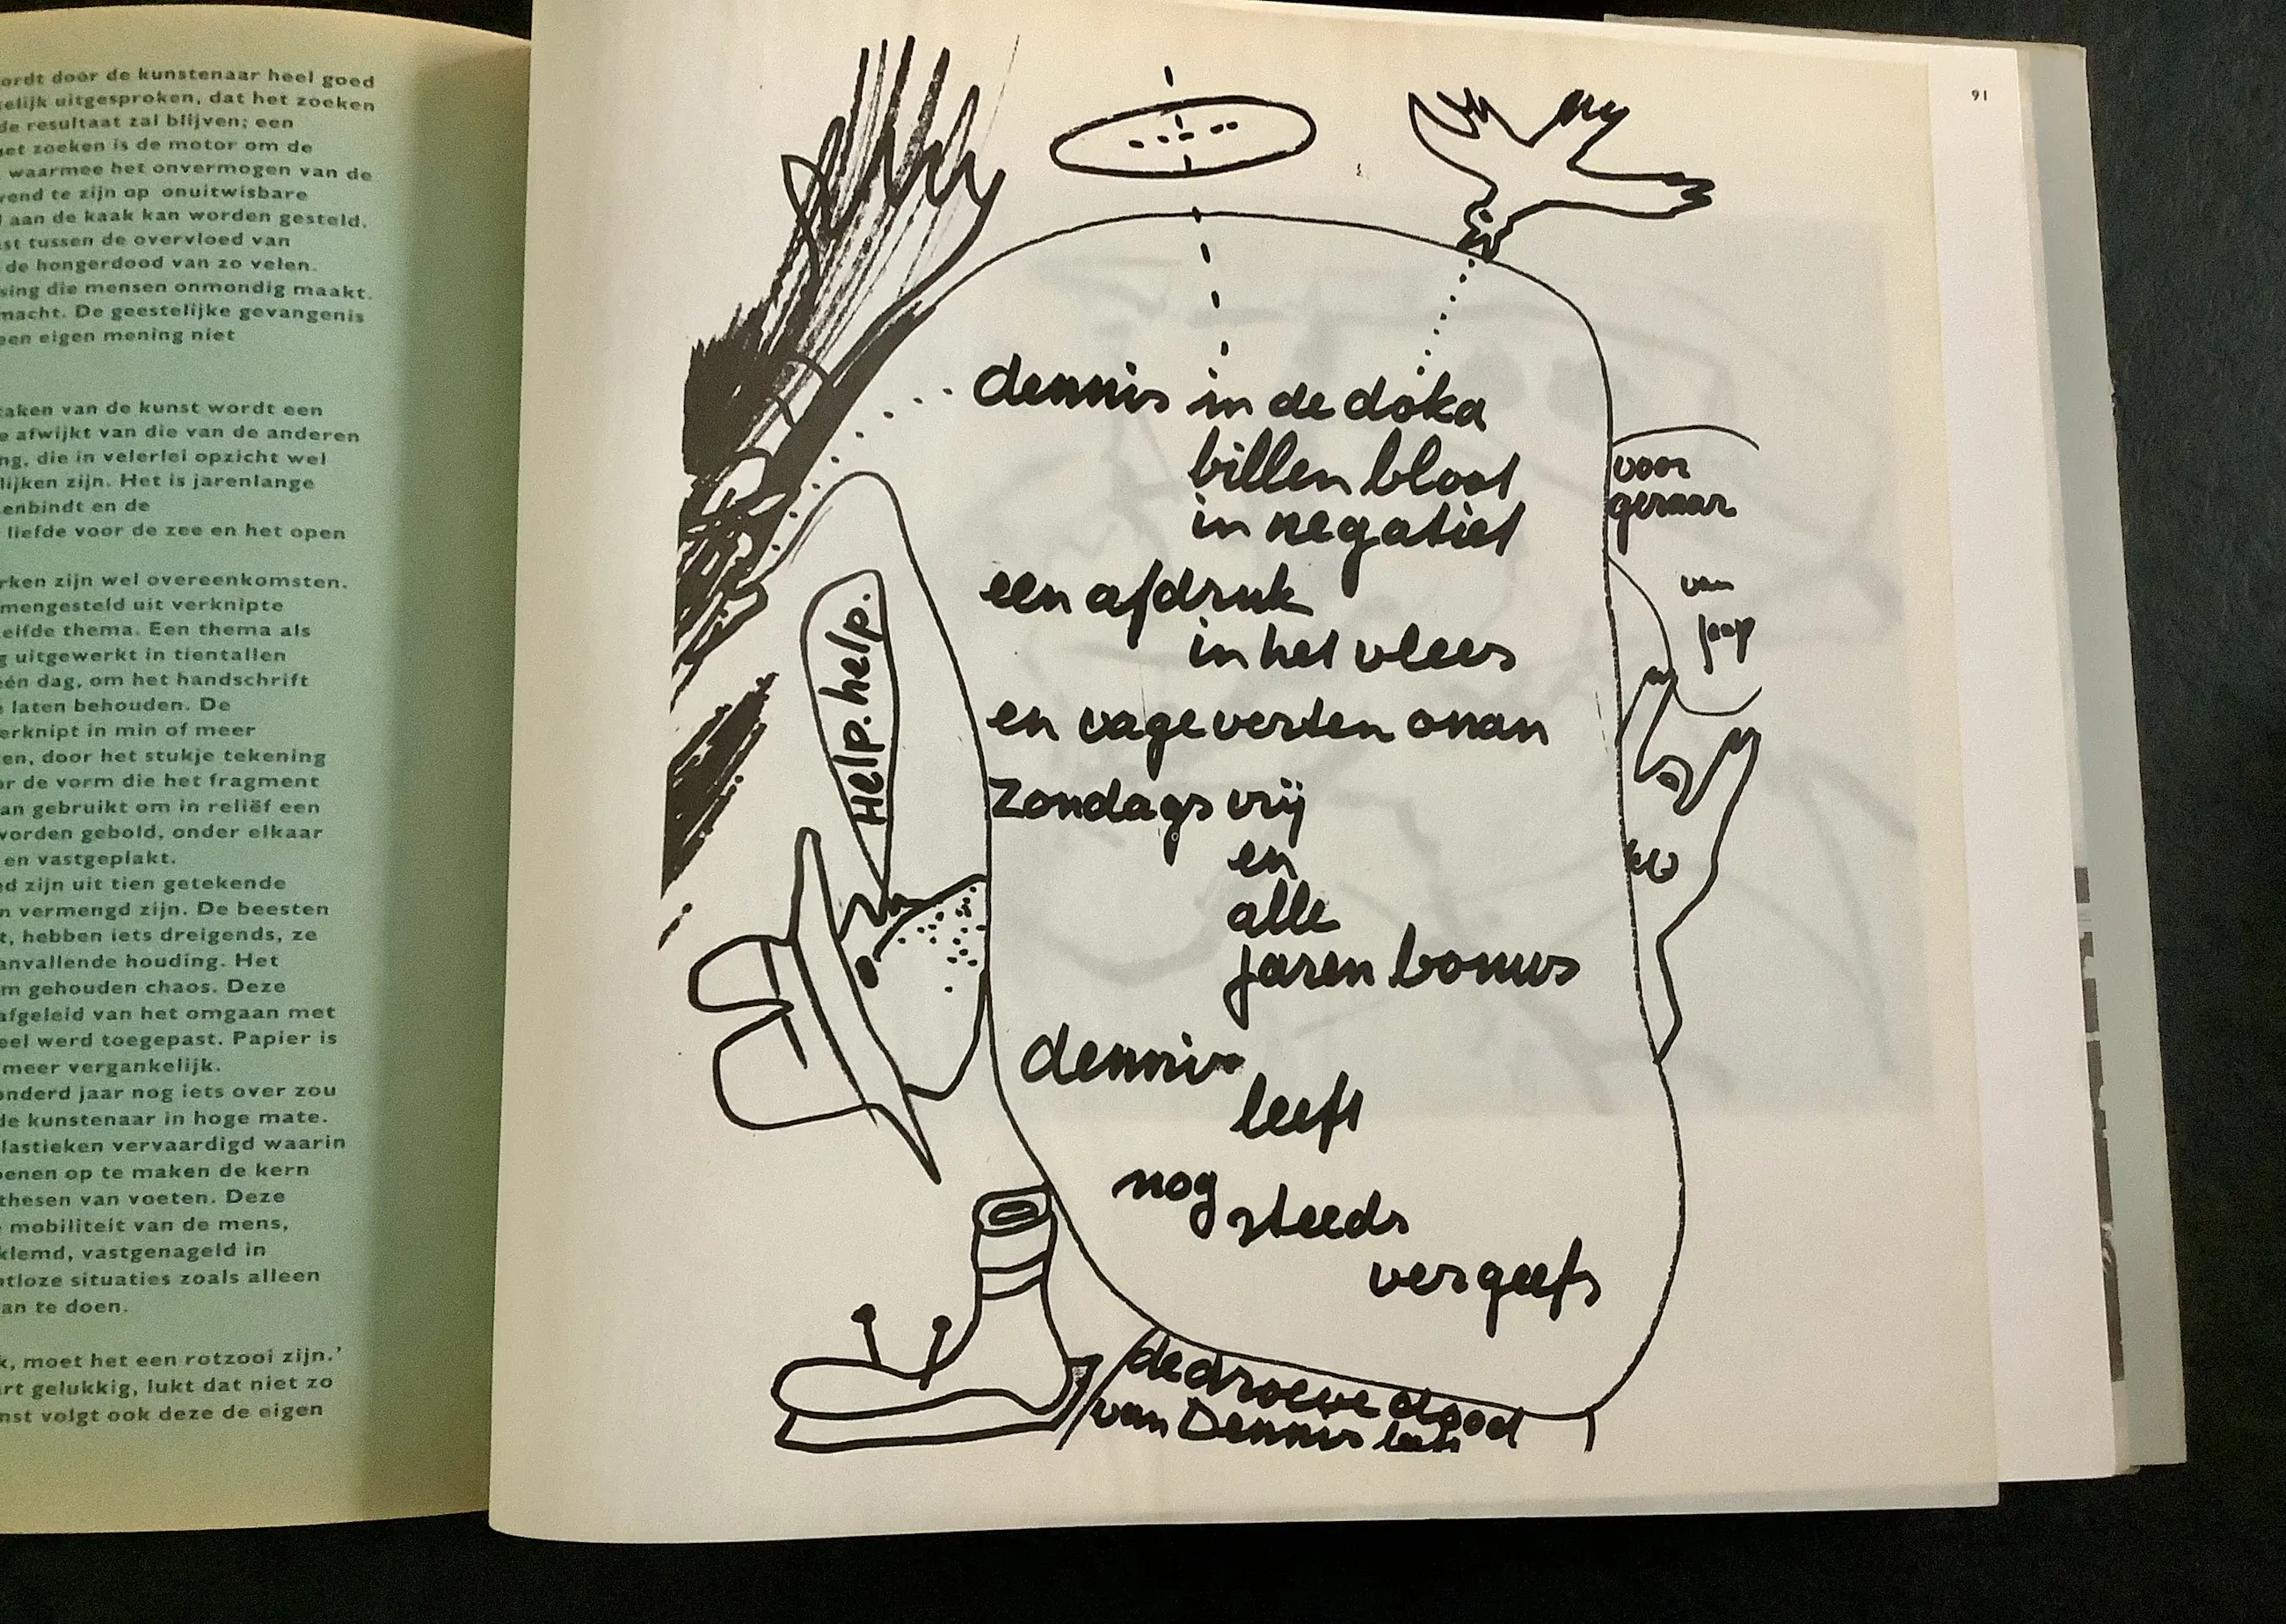 ordt door de kunstenaar heel goed
elijk uitgesproken, dat het zoeken
de resultaat zal blijven; een
het zoeken is de motor om de
waarmee het onvermogen van de
vend te zijn op onuitwisbare
aan de kaak kan worden gesteld.
st tussen de overvloed van
de hongerdood van zo velen.
sing die mensen onmondig maakt.
macht. De geestelijke gevangenis
een eigen mening niet
taken van de kunst wordt een
e afwijkt van die van de anderen
ng, die in velerlei opzicht wel
lijken zijn. Het is jarenlange
enbindt en de
liefde voor de zee en het open
rken zijn wel overeenkomsten.
mengesteld uit verknipte
elfde thema. Een thema als
g uitgewerkt in tientallen
één dag, om het handschrift
e laten behouden. De
erknipt in min of meer
en, door het stukje tekening
or de vorm die het fragment
an gebruikt om in reliëf een
worden gebold, onder elkaar
en vastgeplakt.
d zijn uit tien getekende
n vermengd zijn. De beesten
t, hebben iets dreigends, ze
anvallende houding. Het
m gehouden chaos. Deze
afgeleid van het omgaan met
eel werd toegepast. Papier is
meer vergankelijk.
onderd jaar nog iets over zou
de kunstenaar in hoge mate.
lastieken vervaardigd waarin
oenen op te maken de kern
thesen van voeten. Deze
mobiliteit van de mens,
klemd, vastgenageld in
tloze situaties zoals alleen
an te doen.
k, moet het een rotzooi zijn.'
rt gelukkig, lukt dat niet zo
nst volgt ook deze de eigen
91
dennis in de doka
billen bloot
in negatief
een afdruk
in het vlees
en vage verten onan
Zondags vrij
en
alle
jaren bonus
dennis
leeft
nog
steeds
vergeefs
voor
geraar
van
jaap
Help. help.
de droeve dood
van Dennis